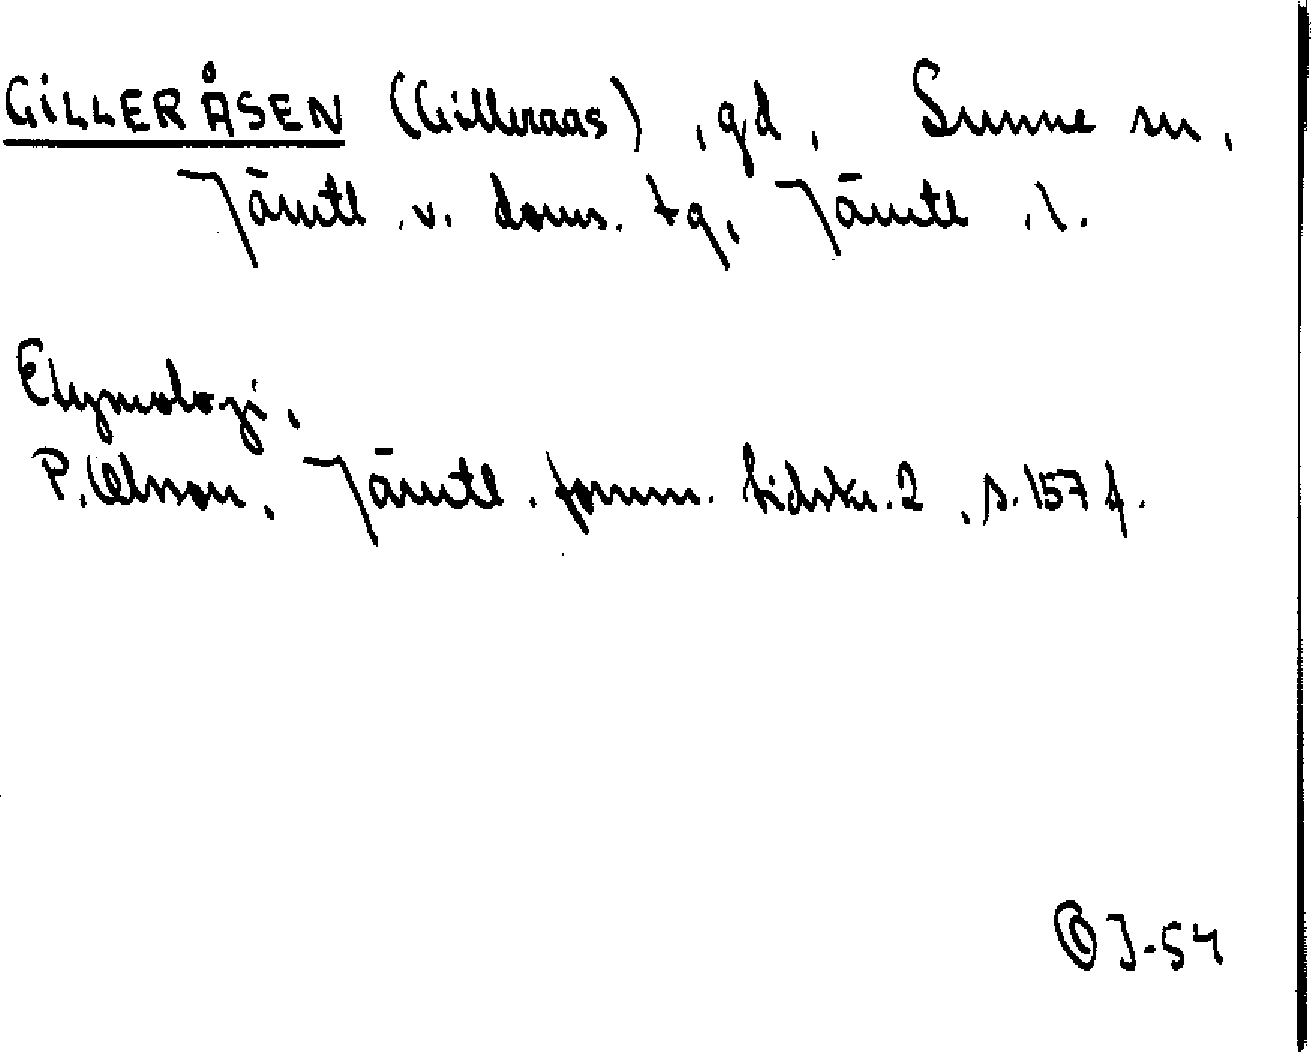 GILLERÅSEN (Gilleraas), gd, Sunne sn,
Jämtl. v. doms. tg, Jämtl. l.
Etymologi.
P. Olsson, Jämtl. fornm. tidskr. 2, s. 157 f.
J-54